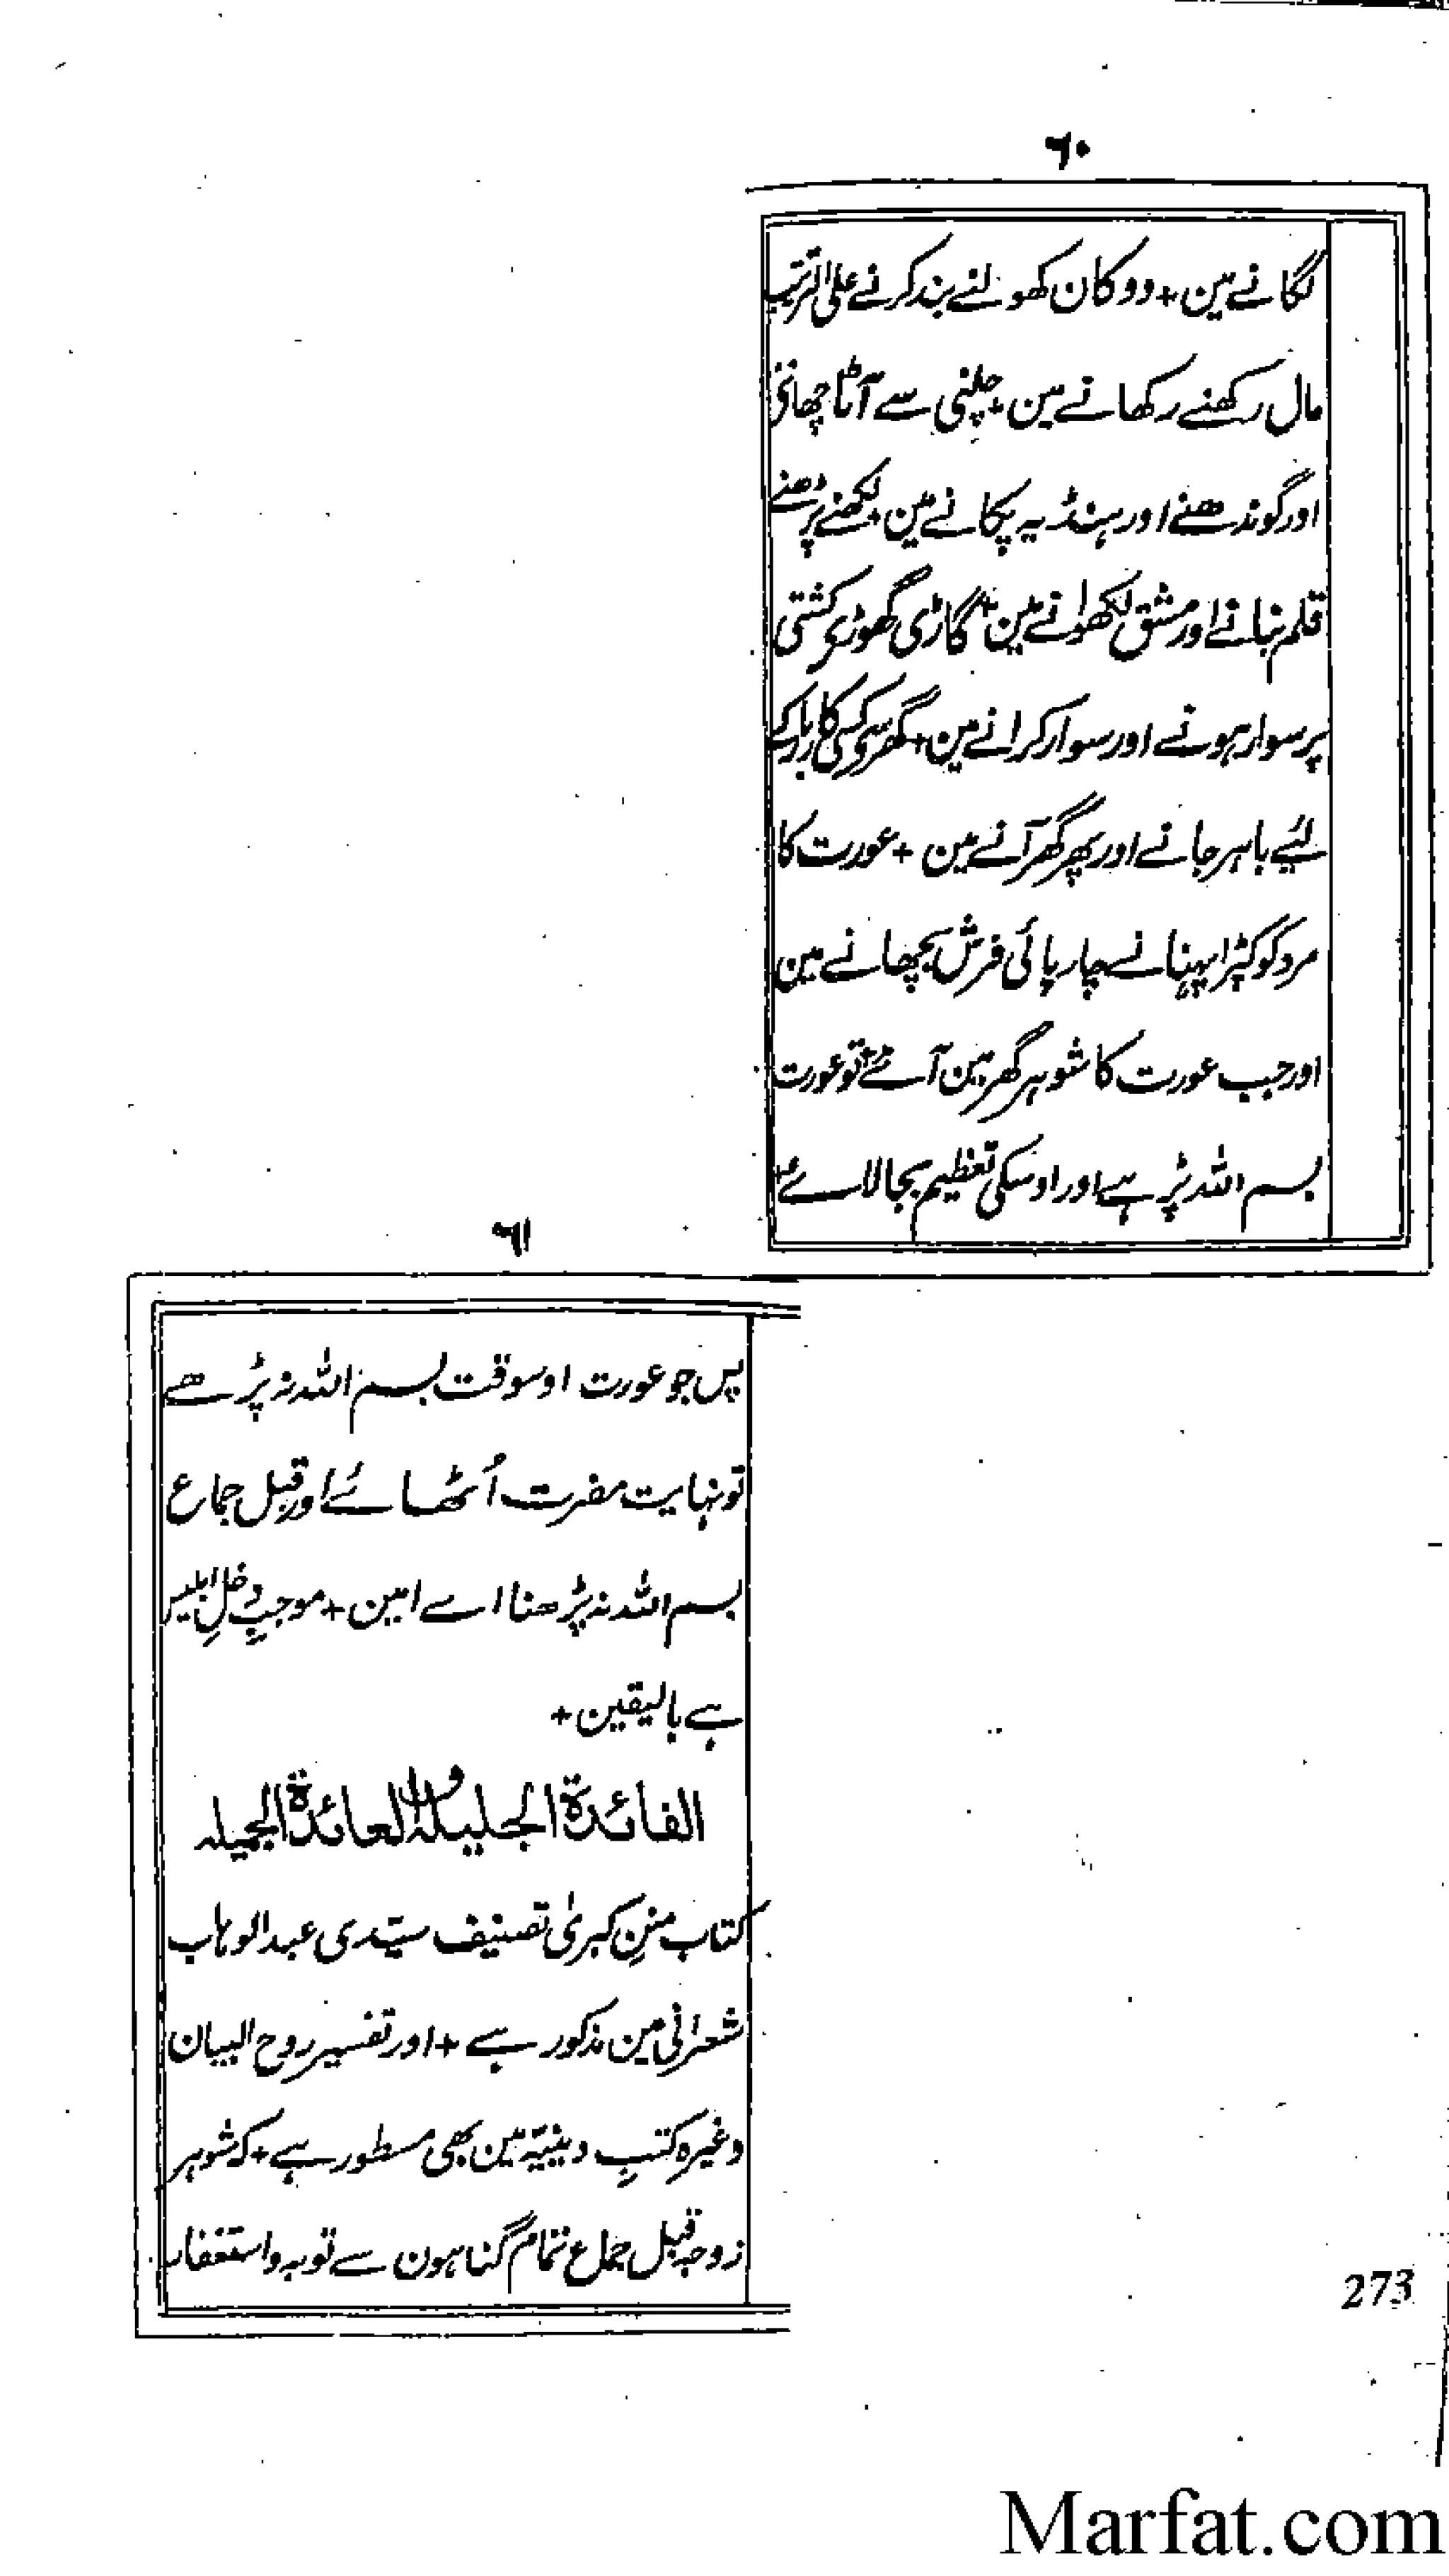 ٦٠
لگانے مین + دوکان کھولنے بند کرنے علی الترتیب
مال رکھنے رکھانے مین + چلنی سے آٹا چھاننے
اور گوندھنے اور ہنڈیہ پکانے مین + لکھنے پڑھنے
قلم بنانے اور مشق لکھوانے مین + گاڑی گھوڑے کشتی
پر سوار ہونے اور سوار کرانے مین + گھر سے کسی کاربار کے
لئیے باہر جانے اور پھر گھر آنے مین + عورت کا
مرد کو کپڑا پہنانے چارپائی فرش بچھانے مین
اور جب عورت کا شوہر گھر مین آئے تو عورت
بسم اللہ پڑہے اور اوسکی تعظیم بجا لائے +
٦١
پس جو عورت اوسوقت بسم اللہ نہ پڑھے
تو نہایت مضرت اُٹھائے اور قبل جماع
بسم اللہ نہ پڑھنا اے امین + موجبِ دخلِ ابلیس
ہے بالیقین +
الفائدۃ الجلیلۃ والعائدۃ الجمیلہ
کتاب مننِ کبریٰ تصنیف سیّدی عبدالوہاب
شعرانی مین مذکور ہے + اور تفسیر روح البیان
وغیرہ کتبِ دینیّہ مین بھی مسطور ہے + کہ شوہر
زوجہ قبل جماع تمام گناہون سے توبہ واستغفار
273
Marfat.com